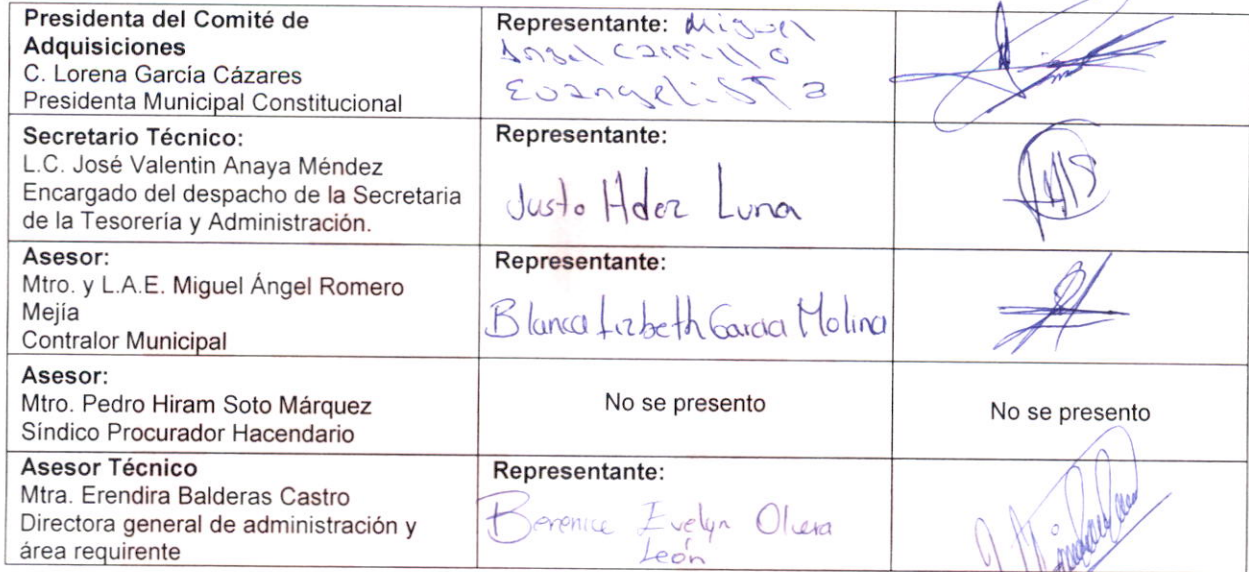 Presidenta del Comité de
Adquisiciones
C. Lorena García Cázares
Presidenta Municipal Constitucional
Representante: Miguel
Angel Carrillo
Evangelista
Secretario Técnico:
L.C. José Valentin Anaya Méndez
Encargado del despacho de la Secretaria
de la Tesorería y Administración.
Representante:
Justo Hdez Luna
Asesor:
Mtro. y L.A.E. Miguel Ángel Romero
Mejía
Contralor Municipal
Representante:
Blanca Lizbeth Garcia Molina
Asesor:
Mtro. Pedro Hiram Soto Márquez
Síndico Procurador Hacendario
No se presento
No se presento
Asesor Técnico
Mtra. Erendira Balderas Castro
Directora general de administración y
área requirente
Representante:
Berenice Evelyn Olvera
León